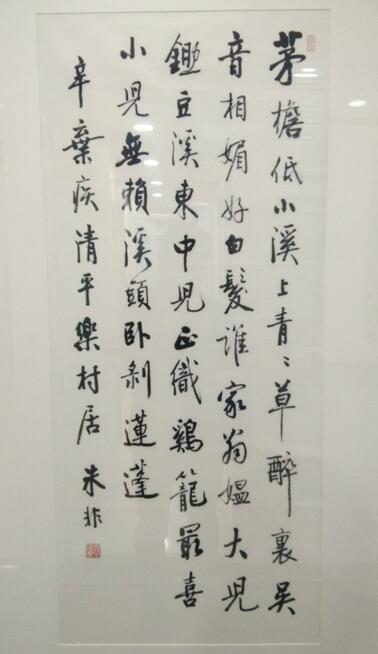 茅檐低小溪上青〻草醉裏吴
音相媚好白髮誰家翁媪大児
鋤豆溪東中児正織鷄籠最喜
小児無賴溪頭卧剥蓮蓬
辛棄疾清平樂村居 朱非